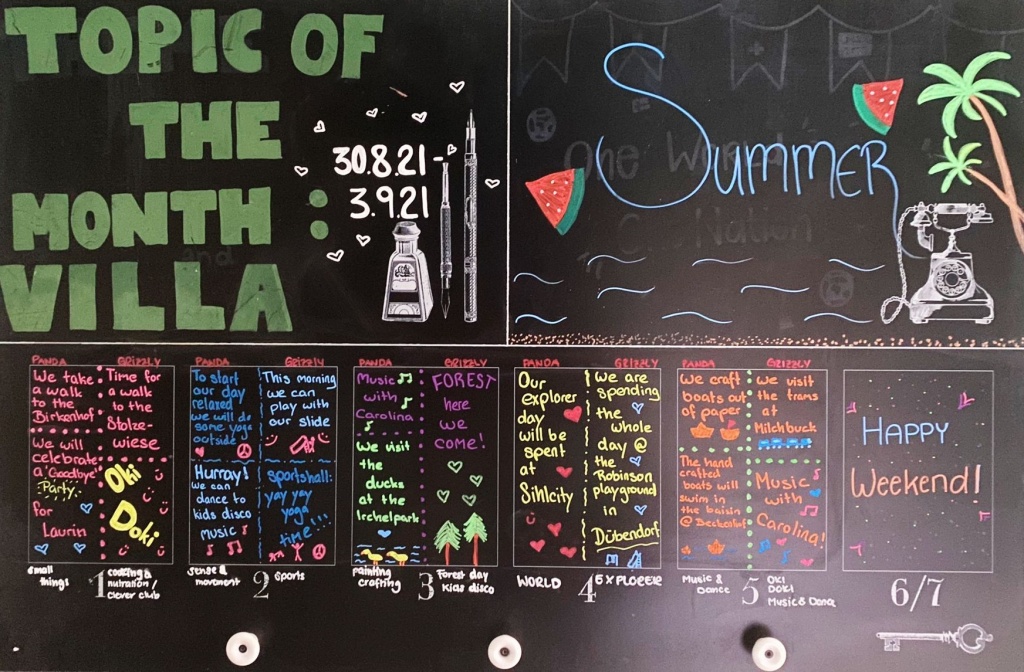 TOPIC OF
THE
MONTH :
VILLA
30.8.21 -
3.9.21
SUMMER
One World
One Nation
and
PANDA
GRIZZLY
We take
a walk
to the
Birkenhof
We will
celebrate
a "Goodbye"
Party
for
Laurin
Time for
a walk
to the
Stolze-
wiese
Oki
Doki
small
things
1
cooking &
nutrition /
clever club
PANDA
GRIZZLY
To start
our day
relaxed
we will do
some yoga
outside
Hurray!
we can
dance to
kids disco
music
This morning
we can
play with
our slide
sportshall:
yay yay
yoga
time!!!
sense &
movement
2
Sports
PANDA
GRIZZLY
Music
with
Carolina
We visit
the
ducks
at the
Irchelpark
FOREST
here
we
come!
painting
crafting
3
Forest day
Kids disco
PANDA
GRIZZLY
Our
explorer
day
will be
spent
at
Sihlcity
We are
spending
the
whole
day @
the
Robinson
playground
in
Dübendorf
WORLD
4
EXPLORER
PANDA
GRIZZLY
We craft
boats out
of paper
The hand
crafted
boats will
swim in
the baisin
@ Beckenhof
we visit
the trams
at
Milchbuck
Music
with
Carolina!
Music &
Dance
5
Oki
Doki
Music & Dance
HAPPY
Weekend!
6/7